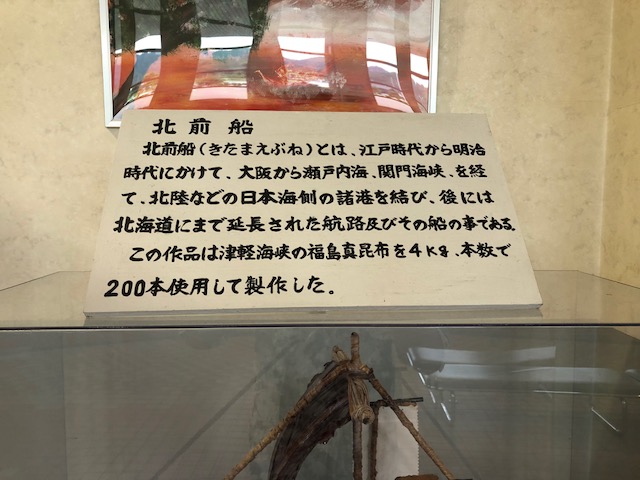 北前船
北前船(きたまえぶね)とは、江戸時代から明治
時代にかけて、大阪から瀬戸内海、関門海峡、を経
て、北陸などの日本海側の諸港を結び、後には
北海道にまで延長された航路及びその船の事である。
この作品は津軽海峡の福島真昆布を4kg、本数で
200本使用して製作した。